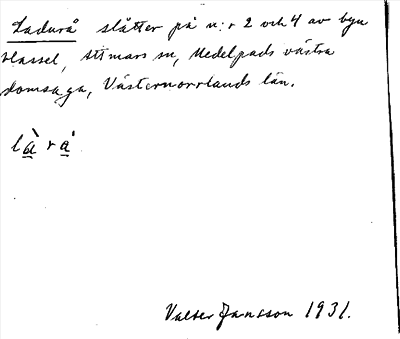 Ladurå slåtter på n:r 2 och 4 av byn
Hassel, Attmars sn, Medelpads västra
domsaga, Västernorrlands län.
là rá
Valter Jansson 1931.